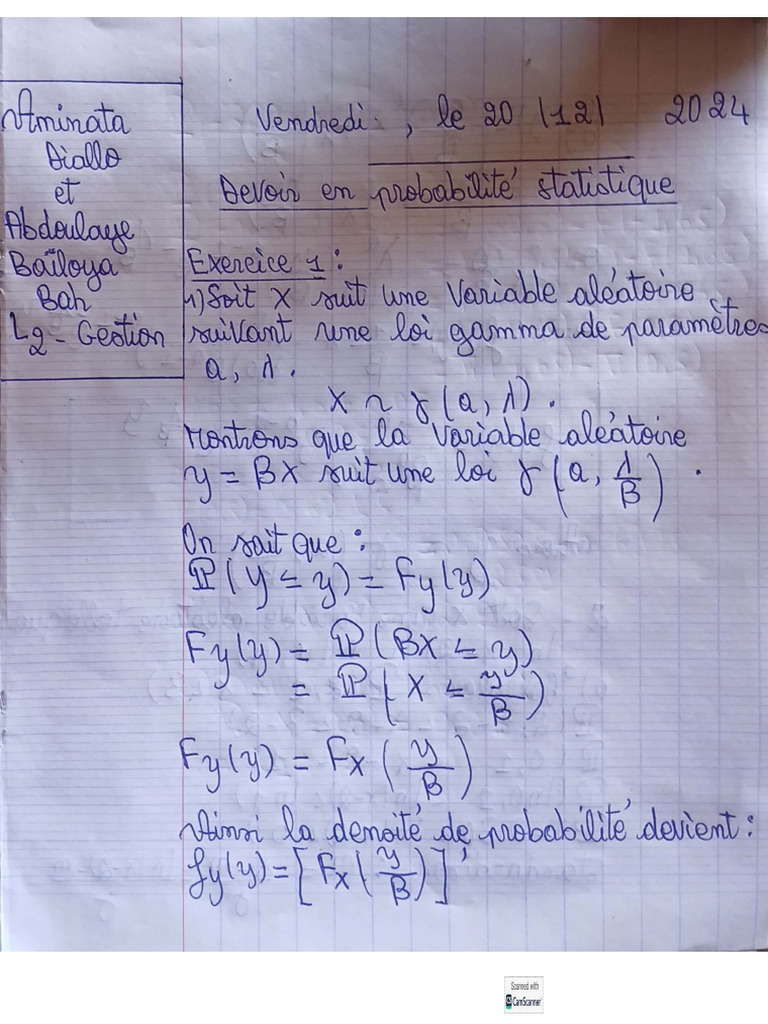 Aminata
Diallo
et
Abdoulaye
Baïloya
Bah
L2 - Gestion
Vendredi, le 20 |12| 2024
Devoir en probabilité statistique
Exercice 1 :
1) Soit X suit une Variable aléatoire
suivant une loi gamma de paramètres
a, λ.
X ~ γ(a, λ).
Montrons que la Variable aléatoire
y = BX suit une loi γ(a, λ/B).
On sait que :
ℙ(Y ≤ y) = Fy(y)
Fy(y) = ℙ(BX ≤ y)
= ℙ(X ≤ y/B)
Fy(y) = Fx(y/B)
Ainsi la densité de probabilité devient :
fy(y) = [Fx(y/B)]'
Scanned with
CamScanner